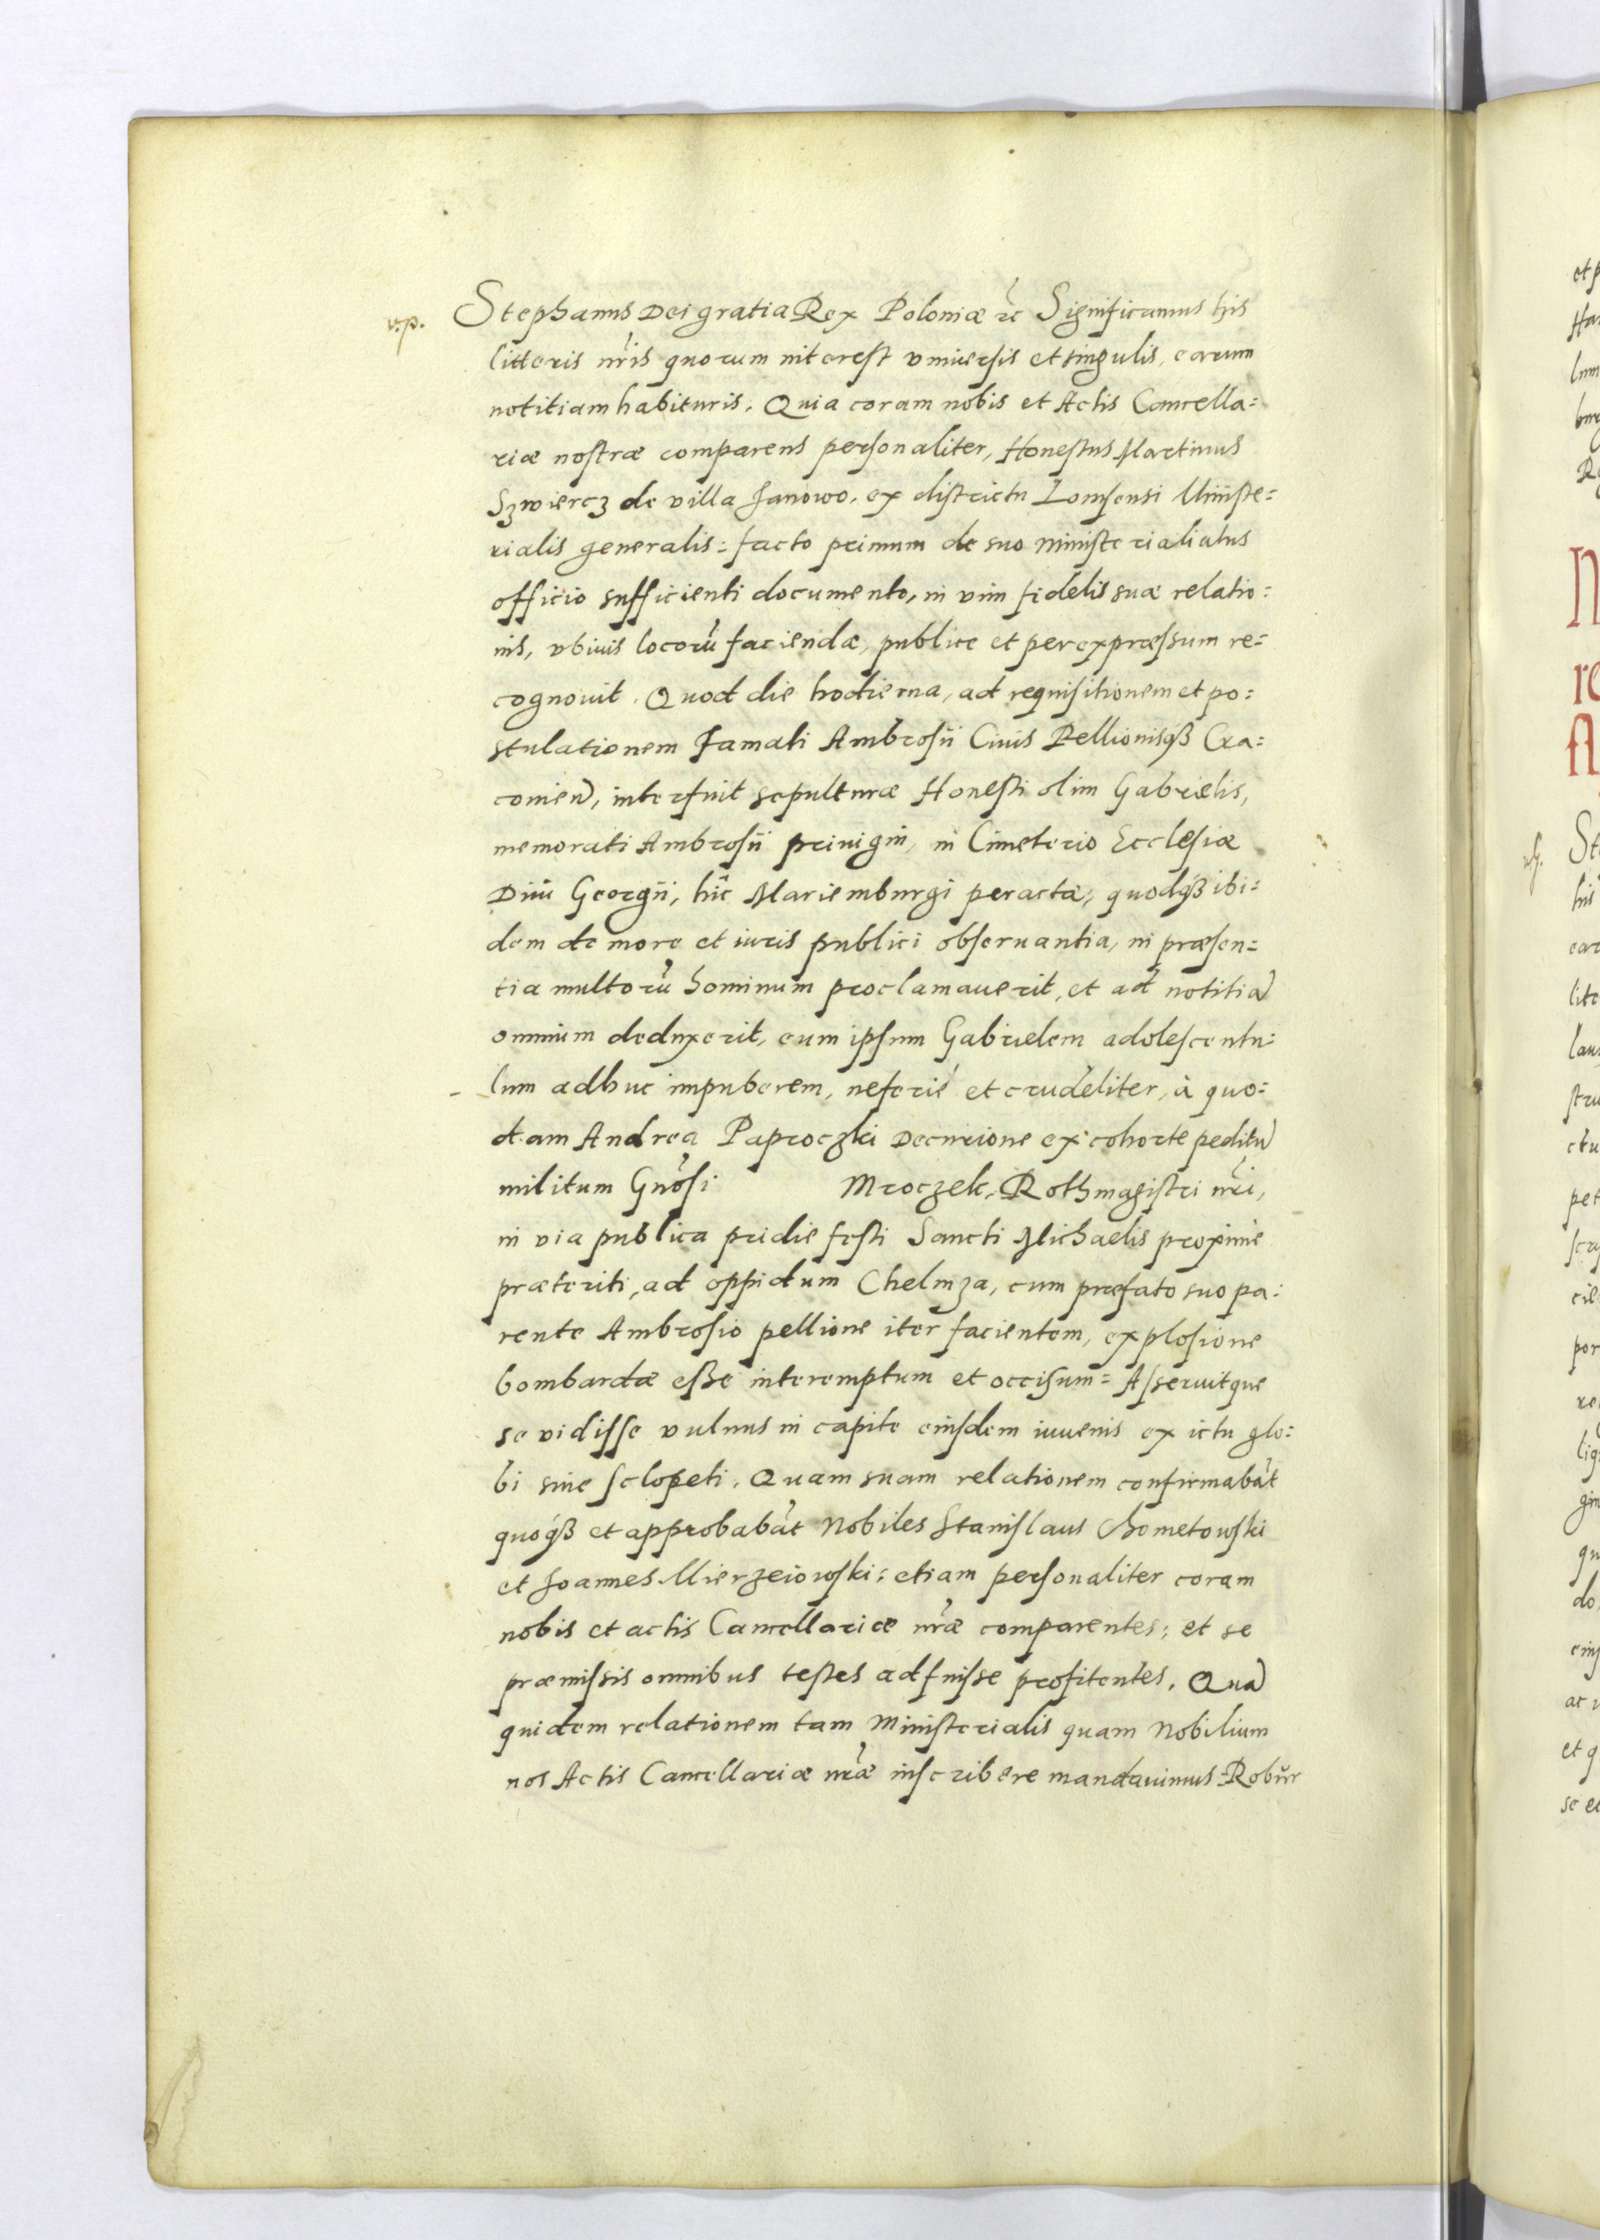 v.p.
Stephanus Dei gratia Rex Poloniæ ꝛc Significamus his
litteris nr̃is quorum interest vniuersis et singulis, earum
notitiam habituris. Quia coram nobis et Actis Cancella=
riæ nostræ comparens personaliter, Honestus Martinus
Szwiercz de villa Janowo, ex districtu Lomsensi Ministe=
rialis generalis: facto primum de suo ministerialiatus
officio sufficienti documento, in vim fidelis suæ relatio=
nis, vbiuis locorũ faciendæ, publice et per expræssum re=
cognouit. Quod die hodierna, ad requisitionem et po=
stulationem Famati Ambrosii Ciuis Pellionisqȝ Cra=
couien̄, interfuit sepulturæ Honesti olim Gabrielis,
memorati Ambrosii priuigni, in Cimeterio Ecclesiæ
Diui Georgii, hîc Mariemburgi peractæ, quodqȝ ibi=
dem de more et iuris publici obseruantia, in præsen=
tia multorũ hominum proclamauerit, et ad notitiã
omnium deduxerit, eum ipsum Gabrielem adolescentu=
lum adhuc impuberem, neferié et crudeliter, à quo=
dam Andrea Paproczki Decurione ex cohorte peditũ
militum Gnõsi Mroczek, Rothmagistri nr̃i,
in via publica pridie festi Sancti Michaelis proximè
præteriti, ad oppidum Chelmza, cum præfato suo pa=
rente Ambrosio pellione iter facientem, explosione
bombardæ esse interemptum et occisum= Asseruitque
se vidisse vulnus in capite eiusdem iuuenis ex ictu glo=
bi siue sclopeti. Quam suam relationem confirmabãt
quoqȝ et approbabãt Nobiles Stanislaus Chometowski
et Joannes Mierzeiowski: etiam personaliter coram
nobis et actis Cancellariæ nr̃æ comparentes: et se
præmissis omnibus testes adfuisse profitentes. Quã
quidem relationem tam Ministerialis quam Nobilium
nos Actis Cancellariæ nr̃æ inscribere mandauimus: Robur